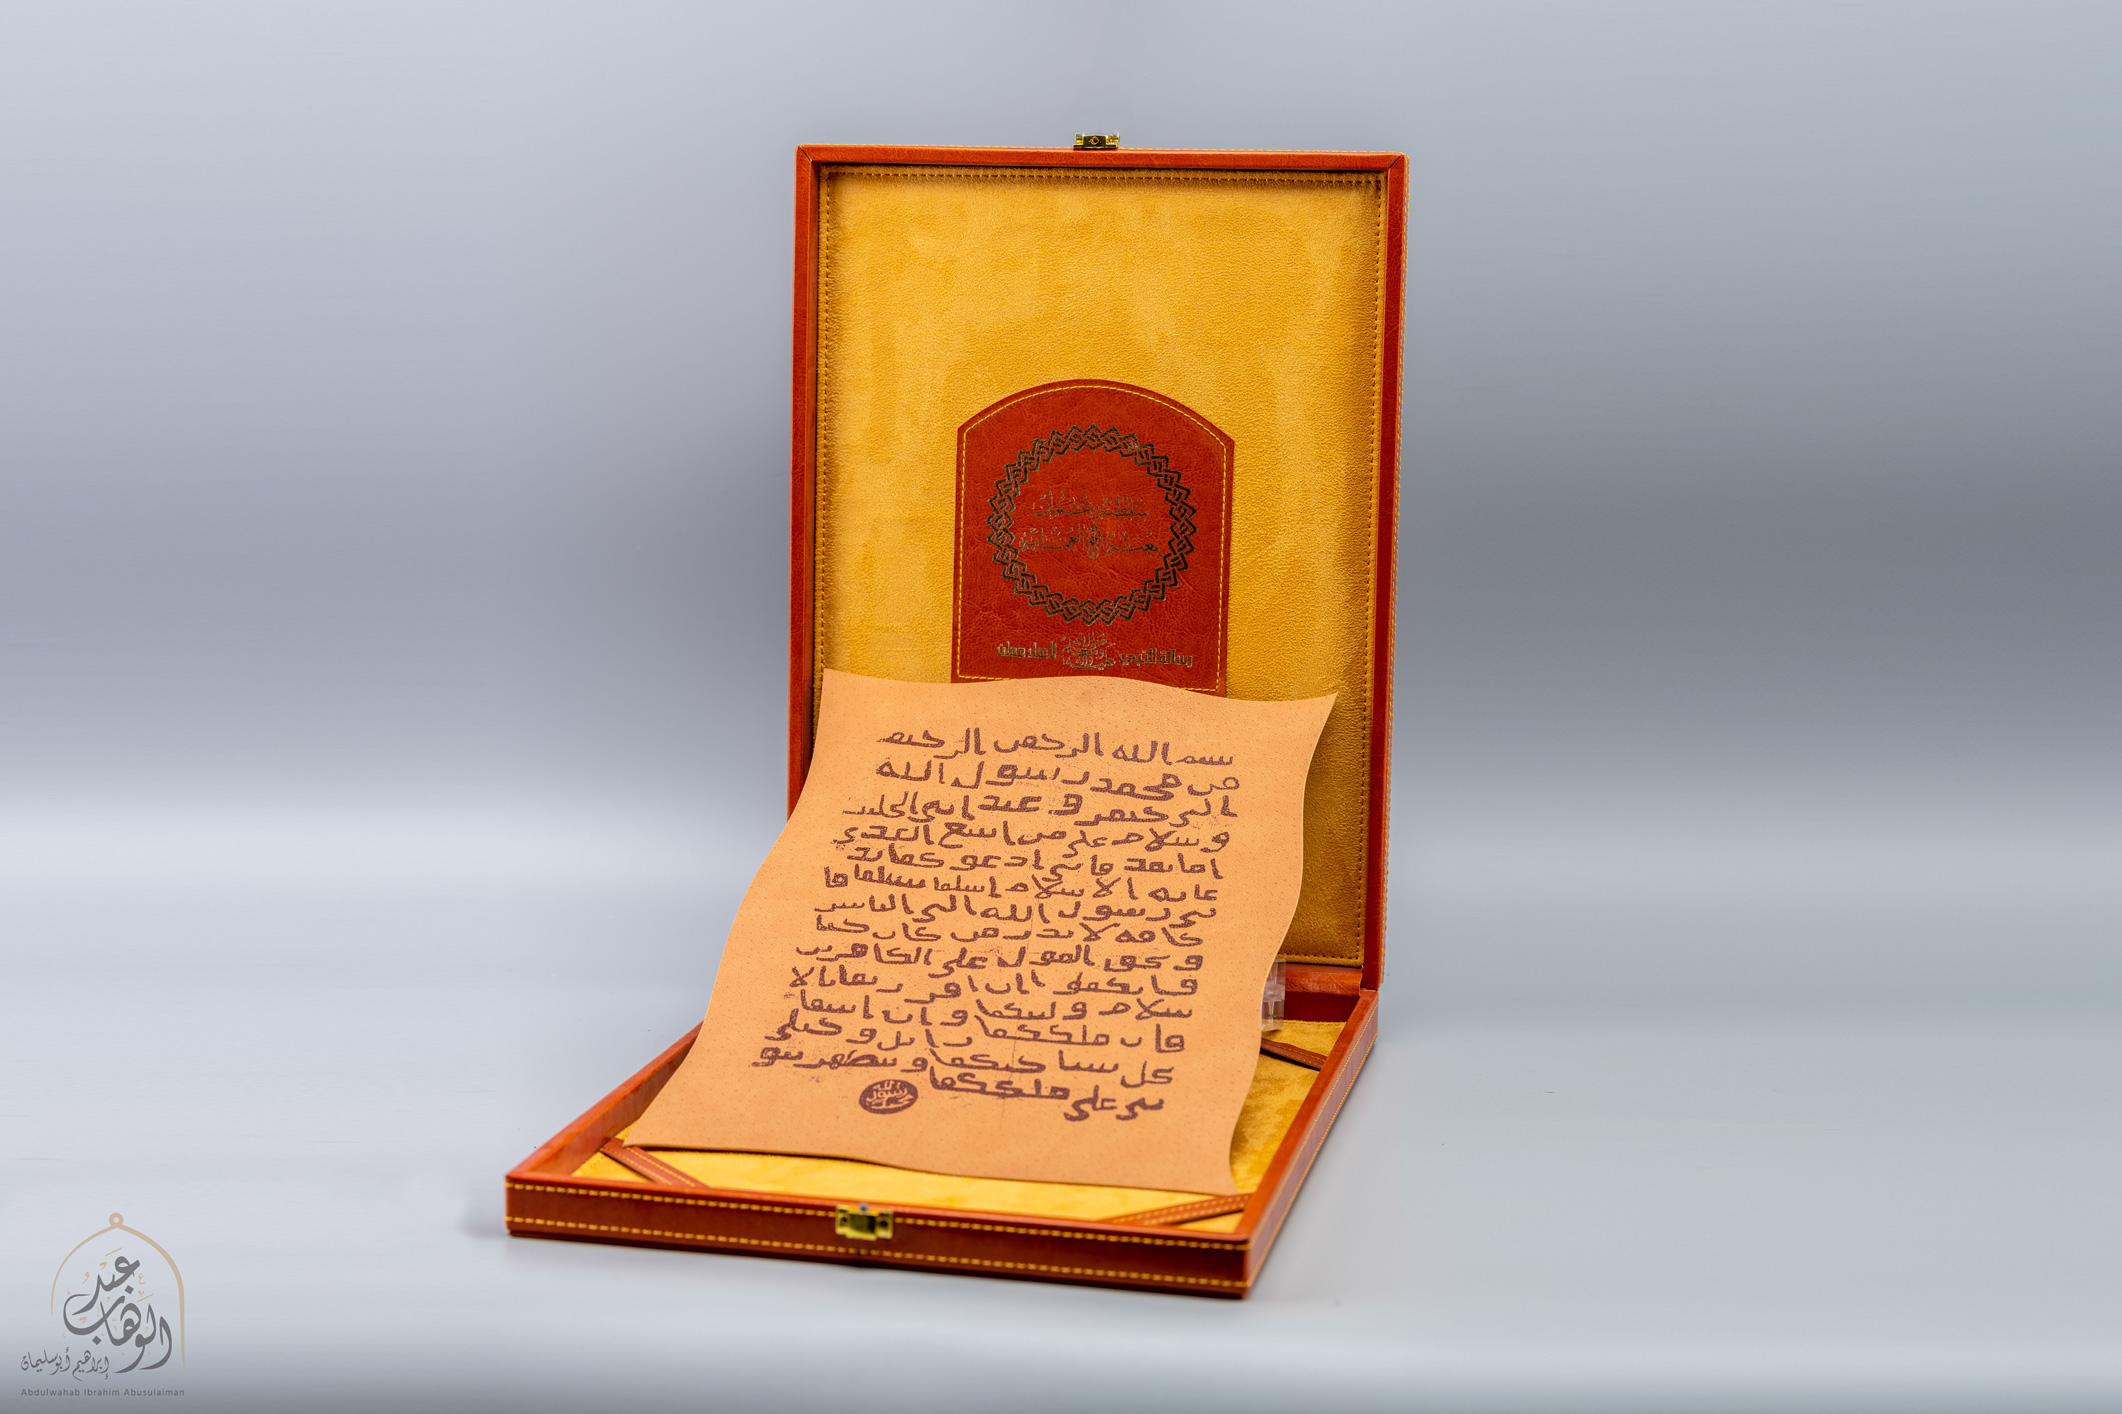 رسالة النبي صلى الله عليه وآله وسلم لأهل عمان
بسم الله الرحمن الرحيم
من محمد رسول الله
الى جيفر و عبد ابني الجلند
و سلام على من اتبع الهدى
اما بعد فاني ادعو كما بد
عايه الاسلام اسلما تسلما فا
ني رسول الله الى الناس
كافه لانذر من كان حيا
و يحق القول على الكافرين
فانكما ان اقررتما بالا
سلام وليتكما وان ابيتما
فان ملككما زايل و خيلي
تحل بساحتكما و تظهر نبو
تي على ملككما
الله
رسول
محمد
عبد
الوهاب
إبراهيم أبوسليمان
Abdulwahab Ibrahim Abusulaiman